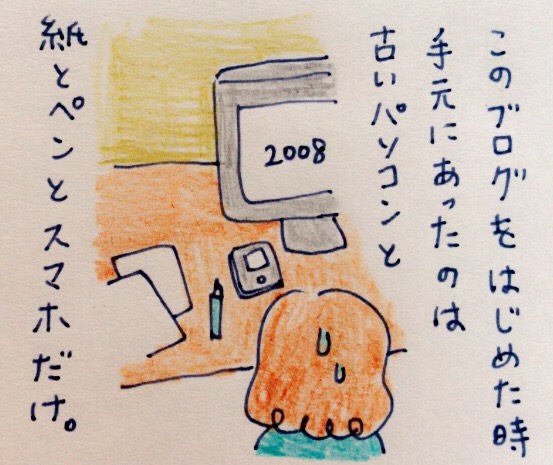 このブログをはじめた時
手元にあったのは
古いパソコンと
2008
紙とペンとスマホだけ。